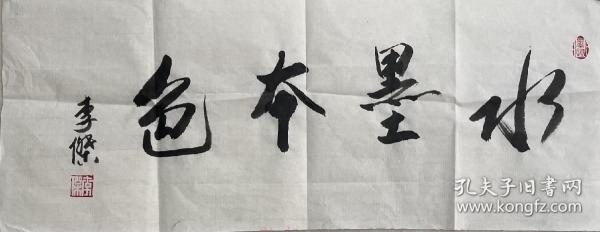 水墨本色
李傑
孔夫子旧书网
www.kongfz.com